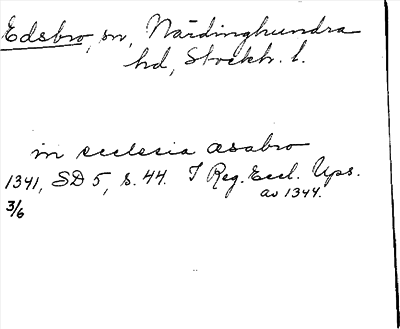 Edsbro, sn, Närdinghundra
hd, Stockh. l.
in ecclesia æsabro
1341, SD 5, s. 44. I Reg. Eccl. Ups.
av 1344.
3/6